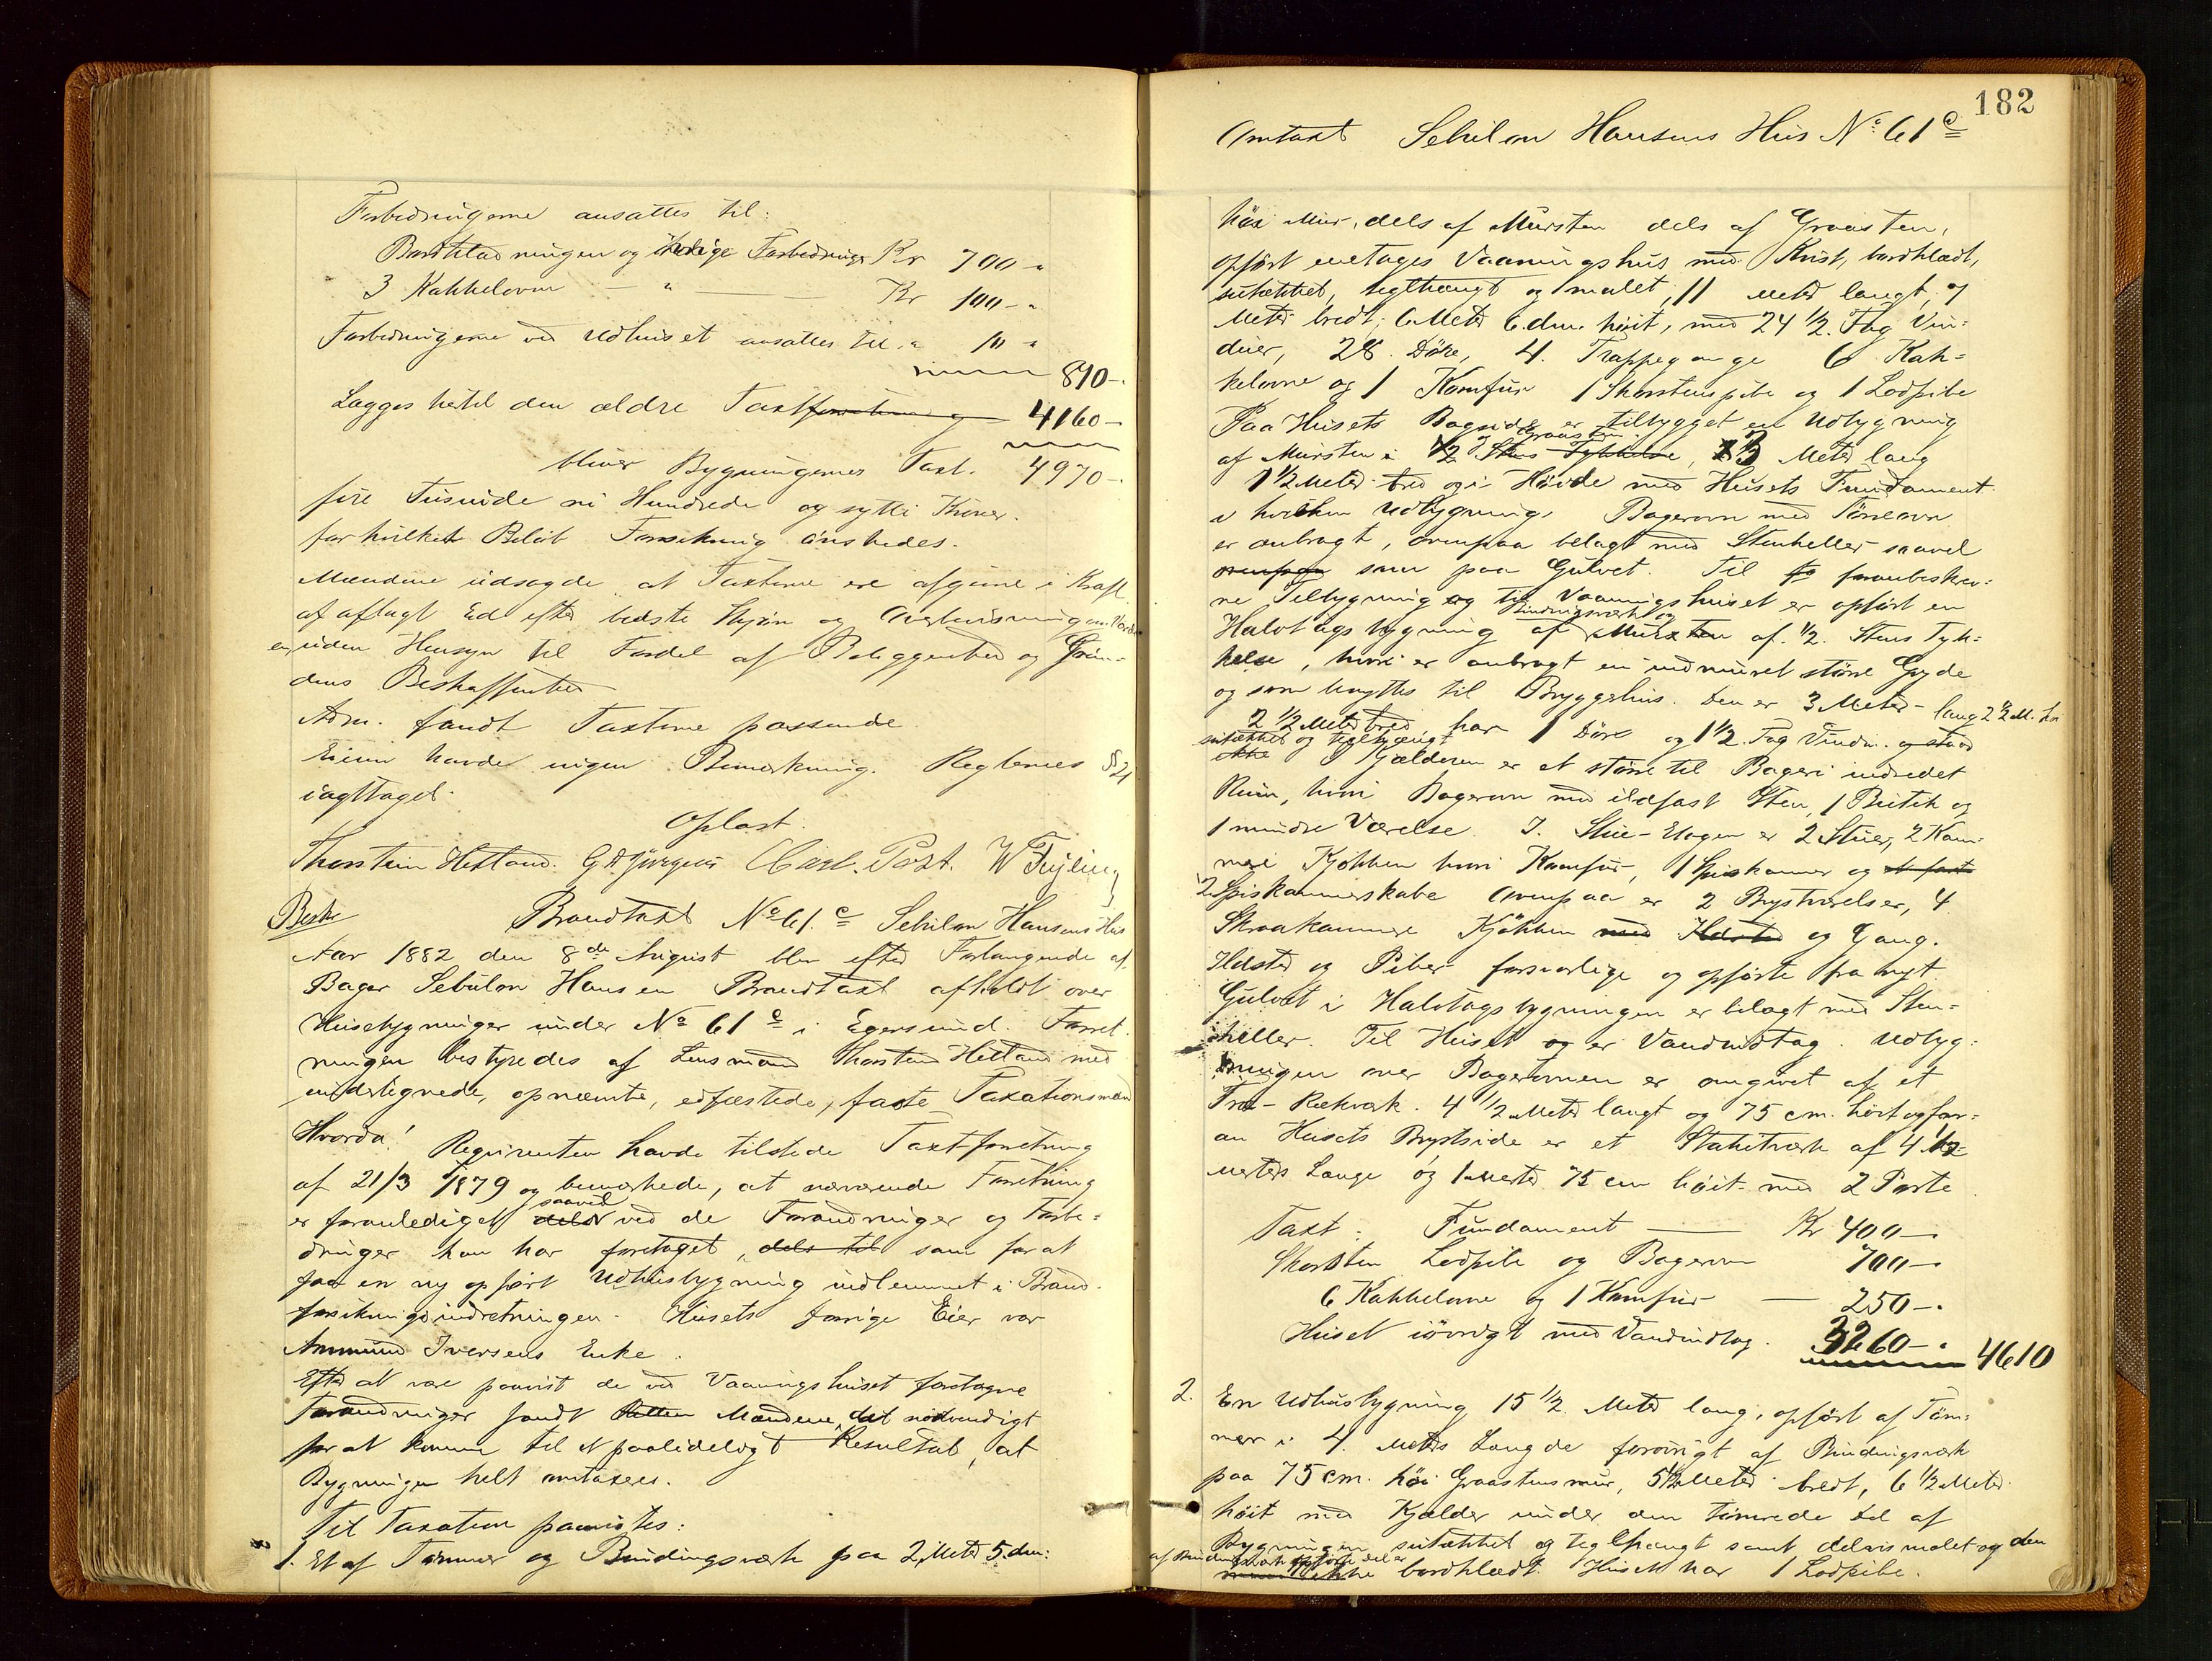 Forbedringerne ansattes til:
Bordklædningen og øvrige Forbedringer Kr 700 "
3 Kakkelovne — " — Kr 100 - "
Forbedringerne ved Udhuset ansattes til " 10 "
810 - "
Lægges hertil den ældre Taxtforretning 4160 -
bliver Bygningernes Taxt. 4970 -
fire Tusinde ni Hundrede og sytti Kroner.
for hvilket Beløb Forsikring ønskedes.
Mændene udsagde at Taxterne ere afgivne i Kraft
af aflagt Ed efter bedste Skjøn og Overbevisning om Værdi
en uden Hensyn til Fordel af Beliggenhed og Grun-
dens Beskaffenhed
Adm. fandt Taxterne passende
Eieren havde ingen Bemærkning. Reglernes § 21
iagttaget.
Oplæst.
Thorstein Hetland. G A Jürgens Carl. Post. W Feyling
Besk. Brandtaxt No 61.c Sebulon Hansens Hus
Aar 1882 den 8de August blev efter Forlangende af
Bager Sebulon Hansen Brandtaxt afholdt over
Husebygninger under No 61c i Egersund. Forret-
ningen bestyredes af Lensmand Thorsten Hetland med
undertegnede, opnævnte, edfæstede, faste Taxationsmænd
Hvorda! Requirenten havde tilstede Taxtforretning
af 21/3 1879 og bemærkede, at nærværende Forretning
er foranlediget dels saavel ved de Forandringer og Forbe-
dringer han har foretaget, dels til som for at
faa en ny opført Udhusbygning indlemmet i Brand-
forsikringsindretningen. Husets forrige Eier var
Ammund Iversens Enke.
Efter at være paavist de ved Vaaningshuset foretagne
Forandringer fandt Retten Mændene det nødvendigt
for at komme til et paalideligt Resultat, at
Bygningen helt omtaxeres.
Til Taxation paavistes:
1. Et af Tømmer og Bindingsværk paa 2 Meter 5 dm:
182
Omtaxt Sebulon Hansens Hus No 61c
høi Mur, dels af Mursten dels af Graasten,
opført eneetages Vaaningshus med Kvist, bordklædt,
sutækket, teglhængt og malet, 11 Meter langt, 7
Meter bredt, 6 Meter 6 dm. høit, med 24 1/2 Fag Vin-
duer, 28 Døre, 4 Trappegange 6 Kak-
kelovne og 1 Komfur 1 Skorstenspibe og 1 Lodpibe
Paa Husets Bagside er tilbygget en Udbygning
af Mursten i 1/2 Stens Tykkelse Graasten, 3 Meter lang
1 1/2 Meter bred og i Høide med Husets Fundament
i hvilken Udbygning Bagerovn med Tørreovn
er anbragt, ovenpaa belagt med Stenheller saavel
ovenpaa som paa Gulvet. Til foranbeskrev-
ne Tilbygning og til Vaaningshuset er opført en
Halvtagsbygning af Bindingsværk og Mursten af 1/2 Stens Tyk-
kelse, hvori er anbragt en indmuret større Gryde
og som benyttes til Bryggehus. Den er 3 Meter lang 2 1/2 M. høi
2 1/2 Meter bred har 1 Dør og 1 1/2 Fag Vindu.
sutækket og teglhængt
ikke I Kjælderen er et større til Bageri indredet
Rum, hvori Bagerovn med ildfast Sten, 1 Butik og
1 mindre Værelse. I Stue-Etagen er 2 Stuer, 2 Kam-
mere Kjøkken hvori Komfur, 1 Spiskammer og et fast
2 Spiskammerskabe Ovenpaa er 2 Brystværelser, 4
Skraakammere Kjøkken med Ildsted og Gang.
Ildsted og Piber forsvarlige og opførte fra nyt
Gulvet i Halvtagsbygningen er belagt med Sten-
heller. Til Huset og er Vandindtag. Udbyg-
ningen over Bagerovnen er omgivet af et
Træ-Rækværk 4 1/2 Meter langt og 75 cm. høit og for-
an Husets Brystside er et Stakitværk af 4 1/2
Meters Længe og 1 Meter 75 cm høit med 2 Porte
Taxt: Fundament — Kr 400 - "
Skorsten Lodpibe og Bagerovn 700 - "
6 Kakkelovne og 1 Komfur — 250 - "
Huset iøvrigt med Vandindtag. 3260 - " 4610
2. En Udhusbygning 15 1/2 Meter lang, opført af Tøm-
mer i 4 Meters Længde forøvrigt af Bindingsværk
paa 75 cm. høi Graastensmur, 5 1/2 Meter bredt, 6 1/2 Meter
høit med Kjælder under den tømrede Del af
Bygningen sutækket og teglhængt samt delvis malet og den
af Bindingsværk opførte Del er
bordklædt. Huset har 1 Lodpibe.